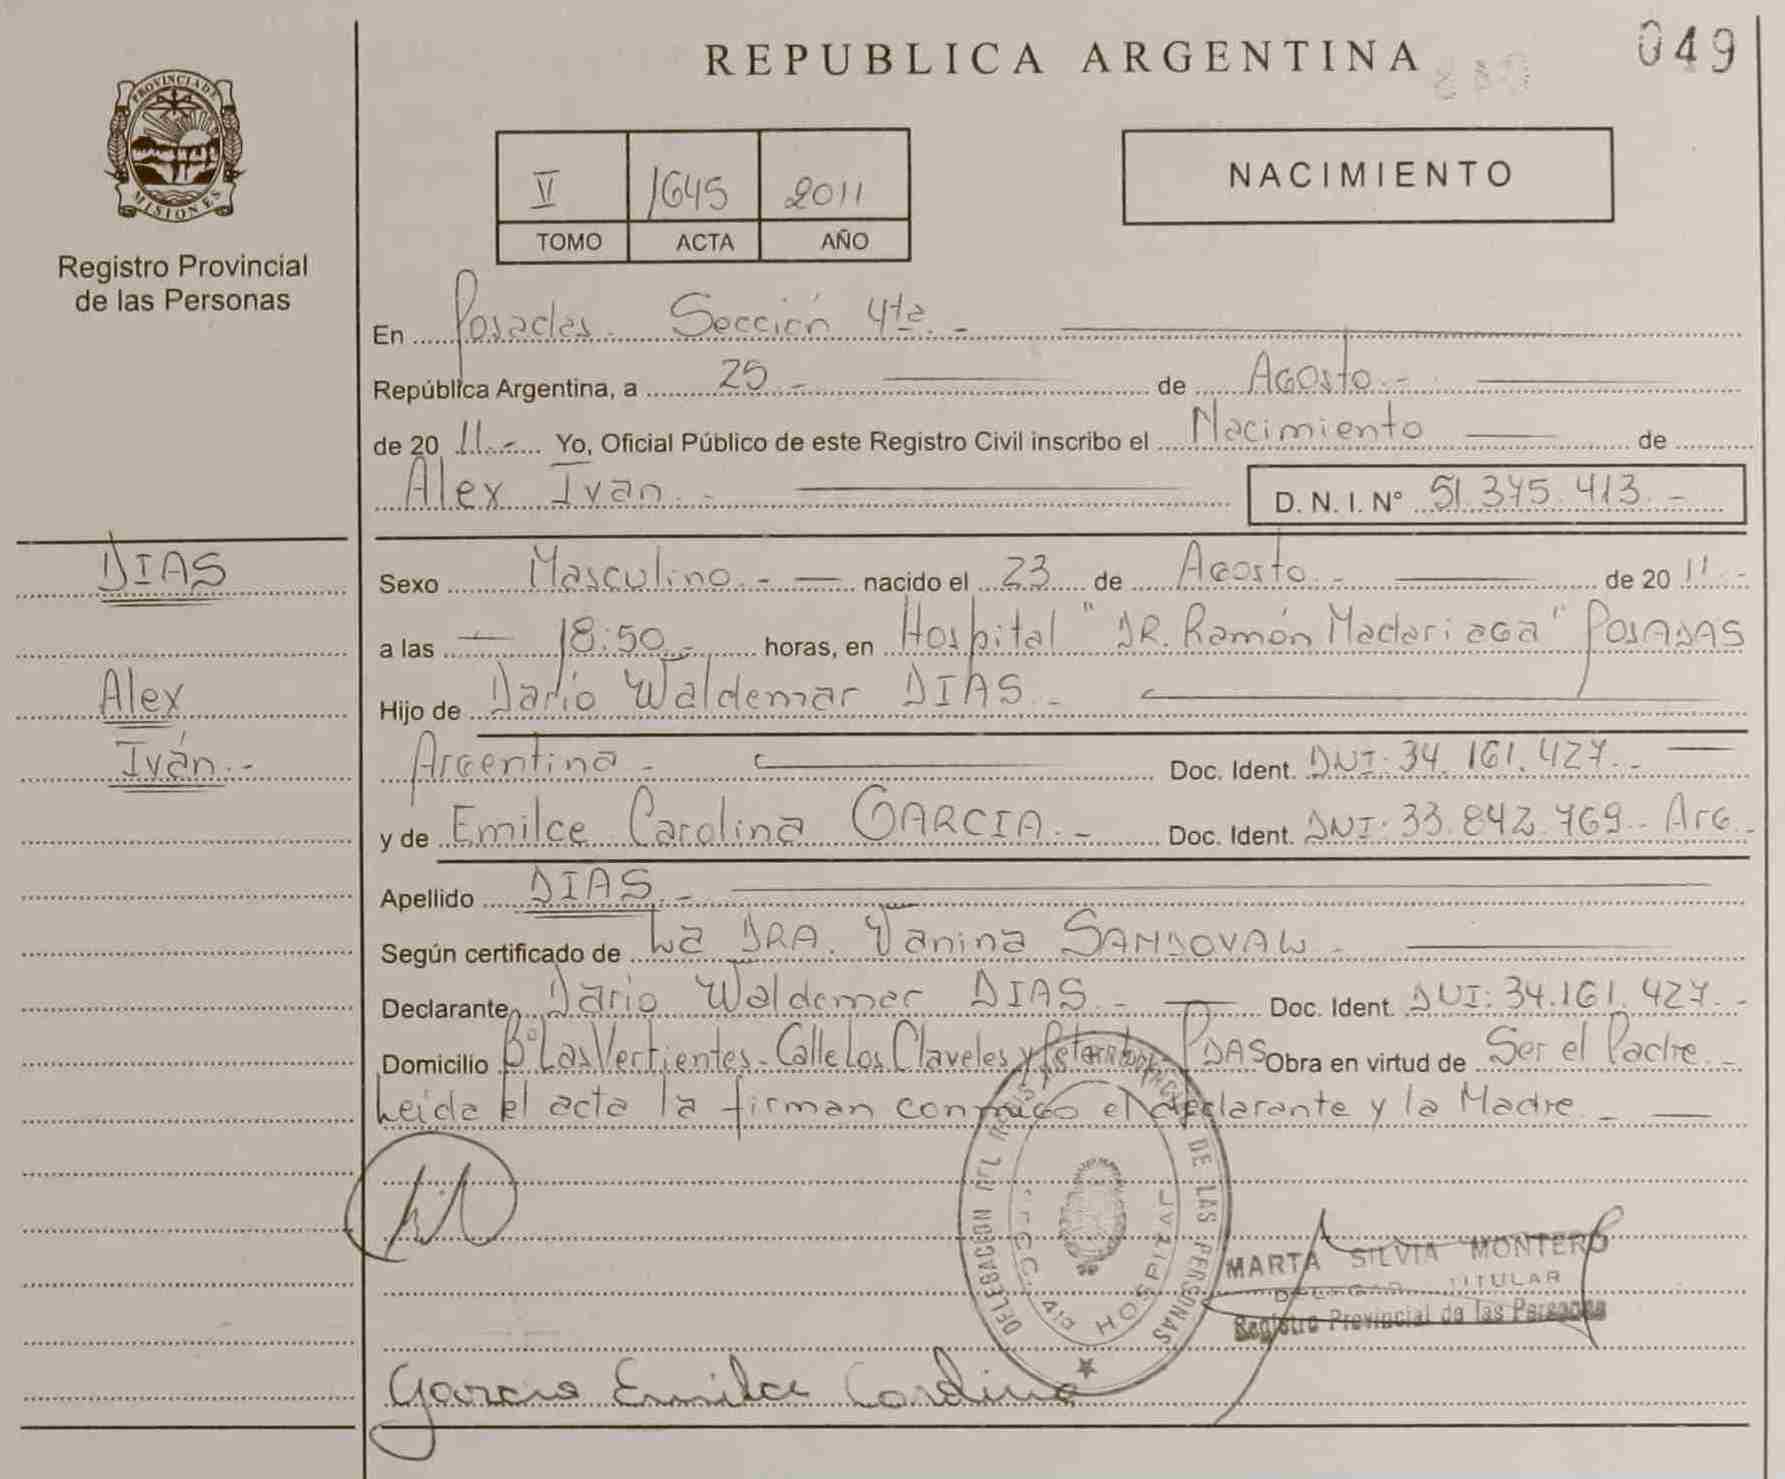 REPUBLICA ARGENTINA
049
PROVINCIA DE
MISIONES
Registro Provincial
de las Personas
V 1645 2011
TOMO ACTA AÑO
NACIMIENTO
En Posadas. Sección 4ta. -
República Argentina, a 25 - de Agosto. -
de 20 11. - Yo, Oficial Público de este Registro Civil inscribo el Nacimiento de
Alex Ivan. - D. N. I. N° 51.375.413. -
DIAS
Alex
Iván. -
Sexo Masculino. - nacido el 23 de Agosto - de 20 11. -
a las 18:50. - horas, en Hospital "DR. Ramón Madariaga" POSADAS
Hijo de Darío Waldemar DIAS. -
Argentina - Doc. Ident. DNI: 34.161.427. -
y de Emilce Carolina GARCIA. - Doc. Ident. DNI: 33.842.769. Arg. -
Apellido DIAS. -
Según certificado de La DRA. Vanina SANDOVAL -
Declarante Dario Waldemar DIAS. - Doc. Ident. DNI: 34.161.427. -
Domicilio B° Las Vertientes. Calle Los Claveles y PDAS Obra en virtud de Ser el Padre. -
Leida el acta la firman conmigo el declarante y la Madre. -
DE LAS PERSONAS
4ta HOSPITAL
MARTA SILVIA MONTERO
TITULAR
Registro Provincial de las Personas
Garcia Emilce Carolina